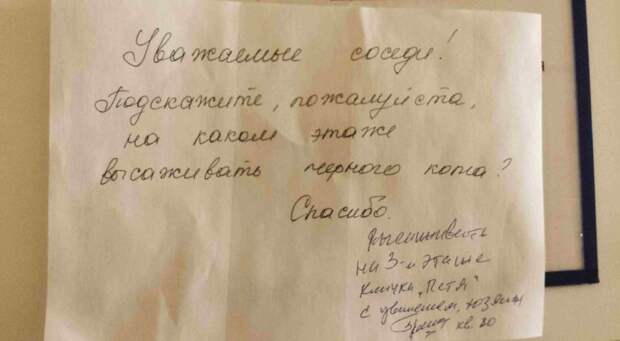 Уважаемые соседи!
Подскажите, пожалуйста,
на каком этаже
высаживать черного кота?
Спасибо.
Высаживать
на 3-м этаже
кличка „Петя"
с уважением, хозяин
кв. 20